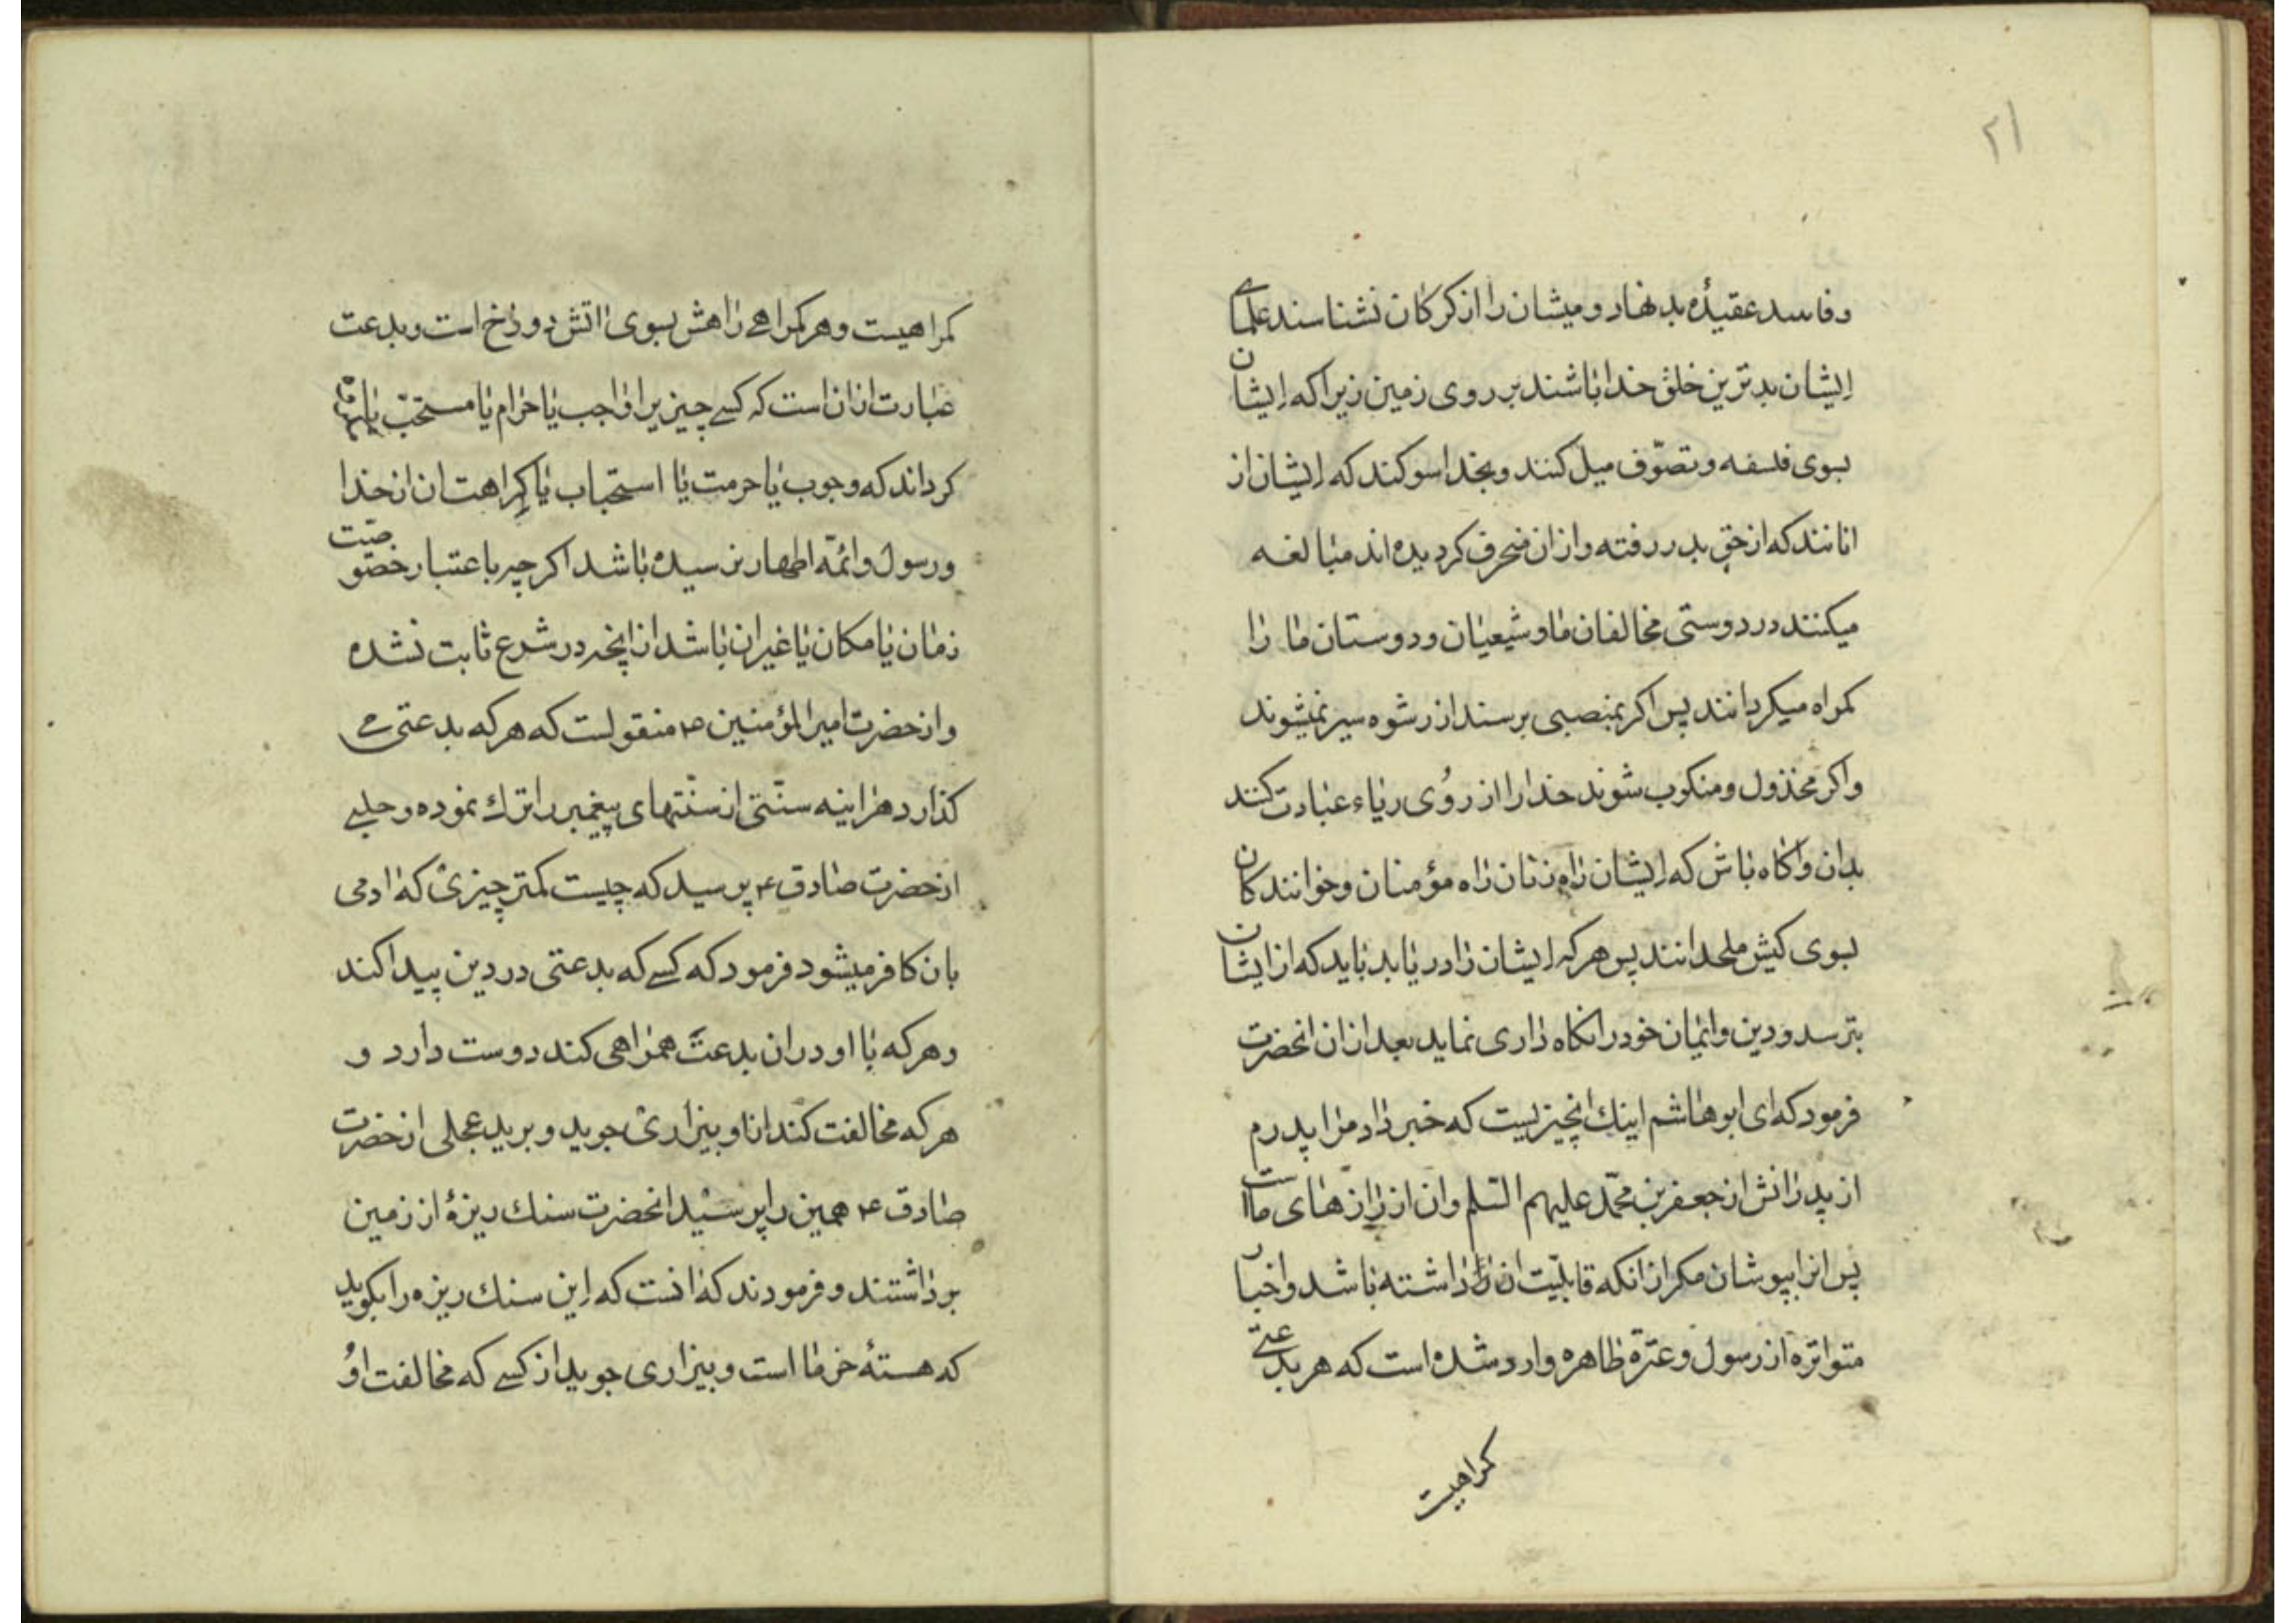 ۲۱
وفاسد عقیدۀ بد نهاد و میشان را از کرکان نشناسند علمای
ایشان بدترین خلق خدا باشند بر روی زمین زیرا که ایشان
بسوی فلسفه و تصوّف میل کنند و بخدا سوکند که ایشان از
انانند که از حق بدر رفته و از ان منحرف کردیده اند مبالغه
میکنند در دوستی مخالفان ما و شیعیان و دوستان ما را
کمراه میکردانند پس اکر بمنصبی برسند از رشوه سیر نمیشوند
و اکر مخذول و منکوب شوند خدا را از روی ریاء عبادت کنند
بدان و اکاه باش که ایشان راه زنان راه مؤمنان و خوانندکان
بسوی کیش ملحدانند پس هر که ایشان را دریابد باید که از ایشان
بترسد و دین و ایمان خود را نکاه داری نماید بعد از ان انحضرت
فرمود که ای ابو هاشم اینك انچیزیست که خبر داد مرا پدرم
از پدرانش از جعفر بن محمّد علیهم السّلم و ان از رازهای ماست
پس انرا بپوشان مکر از انکه قابلیّت ان را داشته باشد و اخبار
متواتره از رسول و عترة طاهره وارد شده است که هر بدعتی
کمراهیست
کمراهیست و هر کمراهی راهش بسوی اتش دوزخ است و بدعت
عبارت از ان است که کسی چیزیرا واجب یا حرام یا مستحبّ یا
کرداند که وجوب یا حرمت یا استحباب یا کراهت ان از خدا
و رسول و ائمّه اطهار نرسیده باشد اکرچه باعتبار خصوصیّت
زمان یا مکان یا غیر ان باشد از انچه در شرع ثابت نشده
و از حضرت امیر المؤمنین ۴ منقولست که هر که بدعتی می
کذارد هراینه سنّتی از سنّتهای پیغمبر را ترك نموده و حلبی
از حضرت صادق ۴ پرسید که چیست کمتر چیزی که ادمی
بان کافر میشود فرمود که کسی که بدعتی در دین پیدا کند
و هر که با او در ان بدعت همراهی کند دوست دارد و
هر که مخالفت کند از او بیزاری جوید و برید عجلی از حضرت
صادق ۴ همین را پرسید انحضرت سنك ریزۀ از زمین
برداشتند و فرمودند که انست که این سنك ریزه را بکوید
که هستۀ خرما است و بیزاری جوید از کسی که مخالفت او